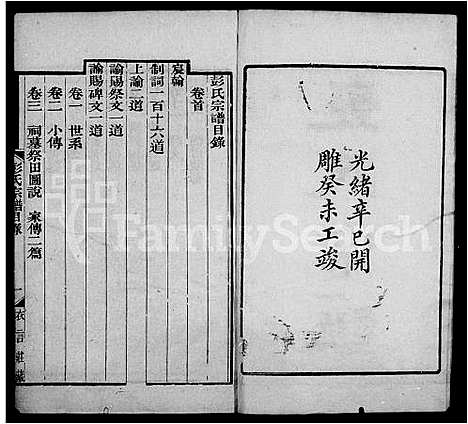 光緒辛巳開
雕癸未工竣
彭氏宗譜目錄
卷首
宸翰
制詞一百十六道
上諭二道
諭賜祭文一道
諭賜碑文一道
卷一 世系
卷二 小傳
卷三 祠墓祭田圖說 家傳二篇
彭氏宗譜目錄
一
莊藏
FamilySearch